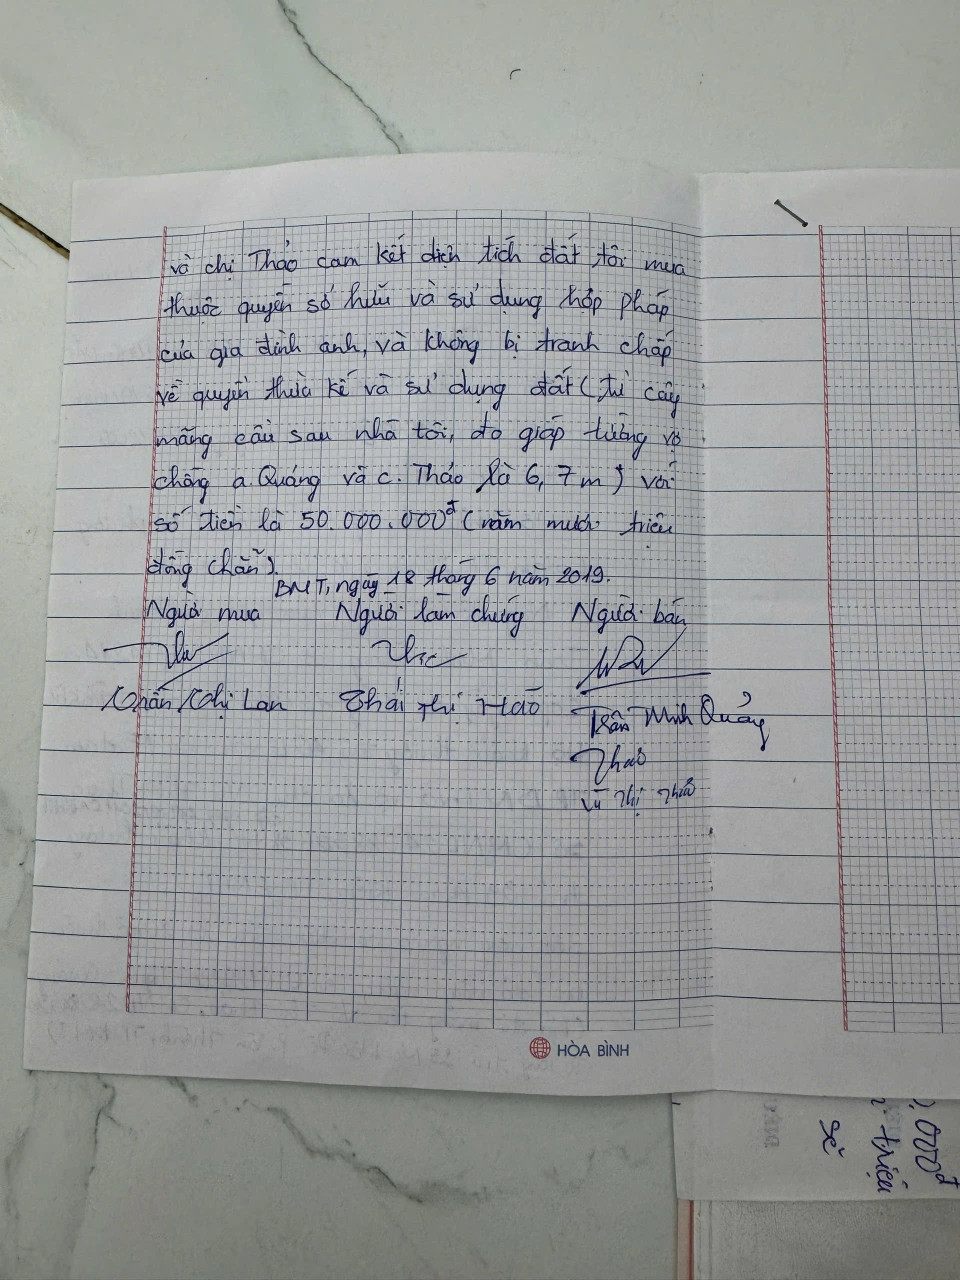 và chị Thảo cam kết diện tích đất tôi mua
thuộc quyền sở hữu và sử dụng hợp pháp
của gia đình anh, và không bị tranh chấp
về quyền thừa kế và sử dụng đất (từ cây
mãng cầu sau nhà tôi, đo giáp tường vợ
chồng a. Quảng và c. Thảo là 6,7m) với
số tiền là 50.000.000đ (năm mươi triệu
đồng chẵn).
BMT, ngày 18 tháng 6 năm 2019.
Người mua Người làm chứng Người bán
Trần Thị Lan Thái Thị Hảo Trần Minh Quảng
Thảo
Vũ Thị Thảo
HÒA BÌNH
,000đ
triệu
sẻ